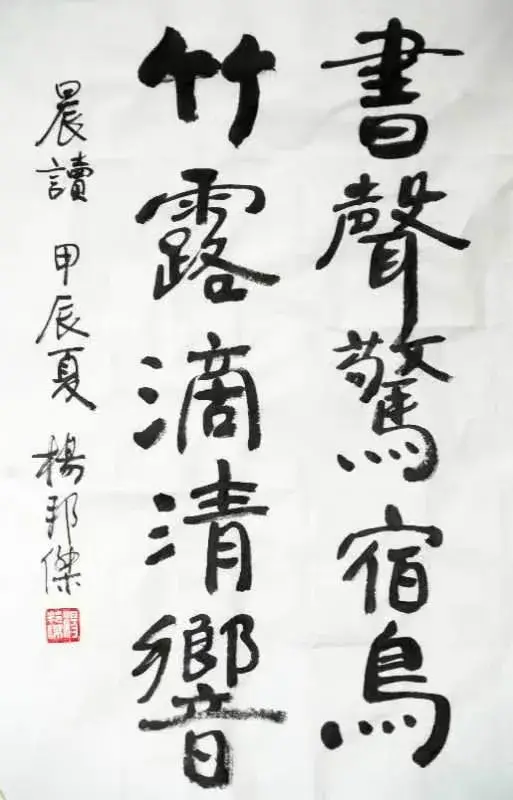 書聲驚宿鳥
竹露滴清響
晨讀 甲辰夏 楊邦傑